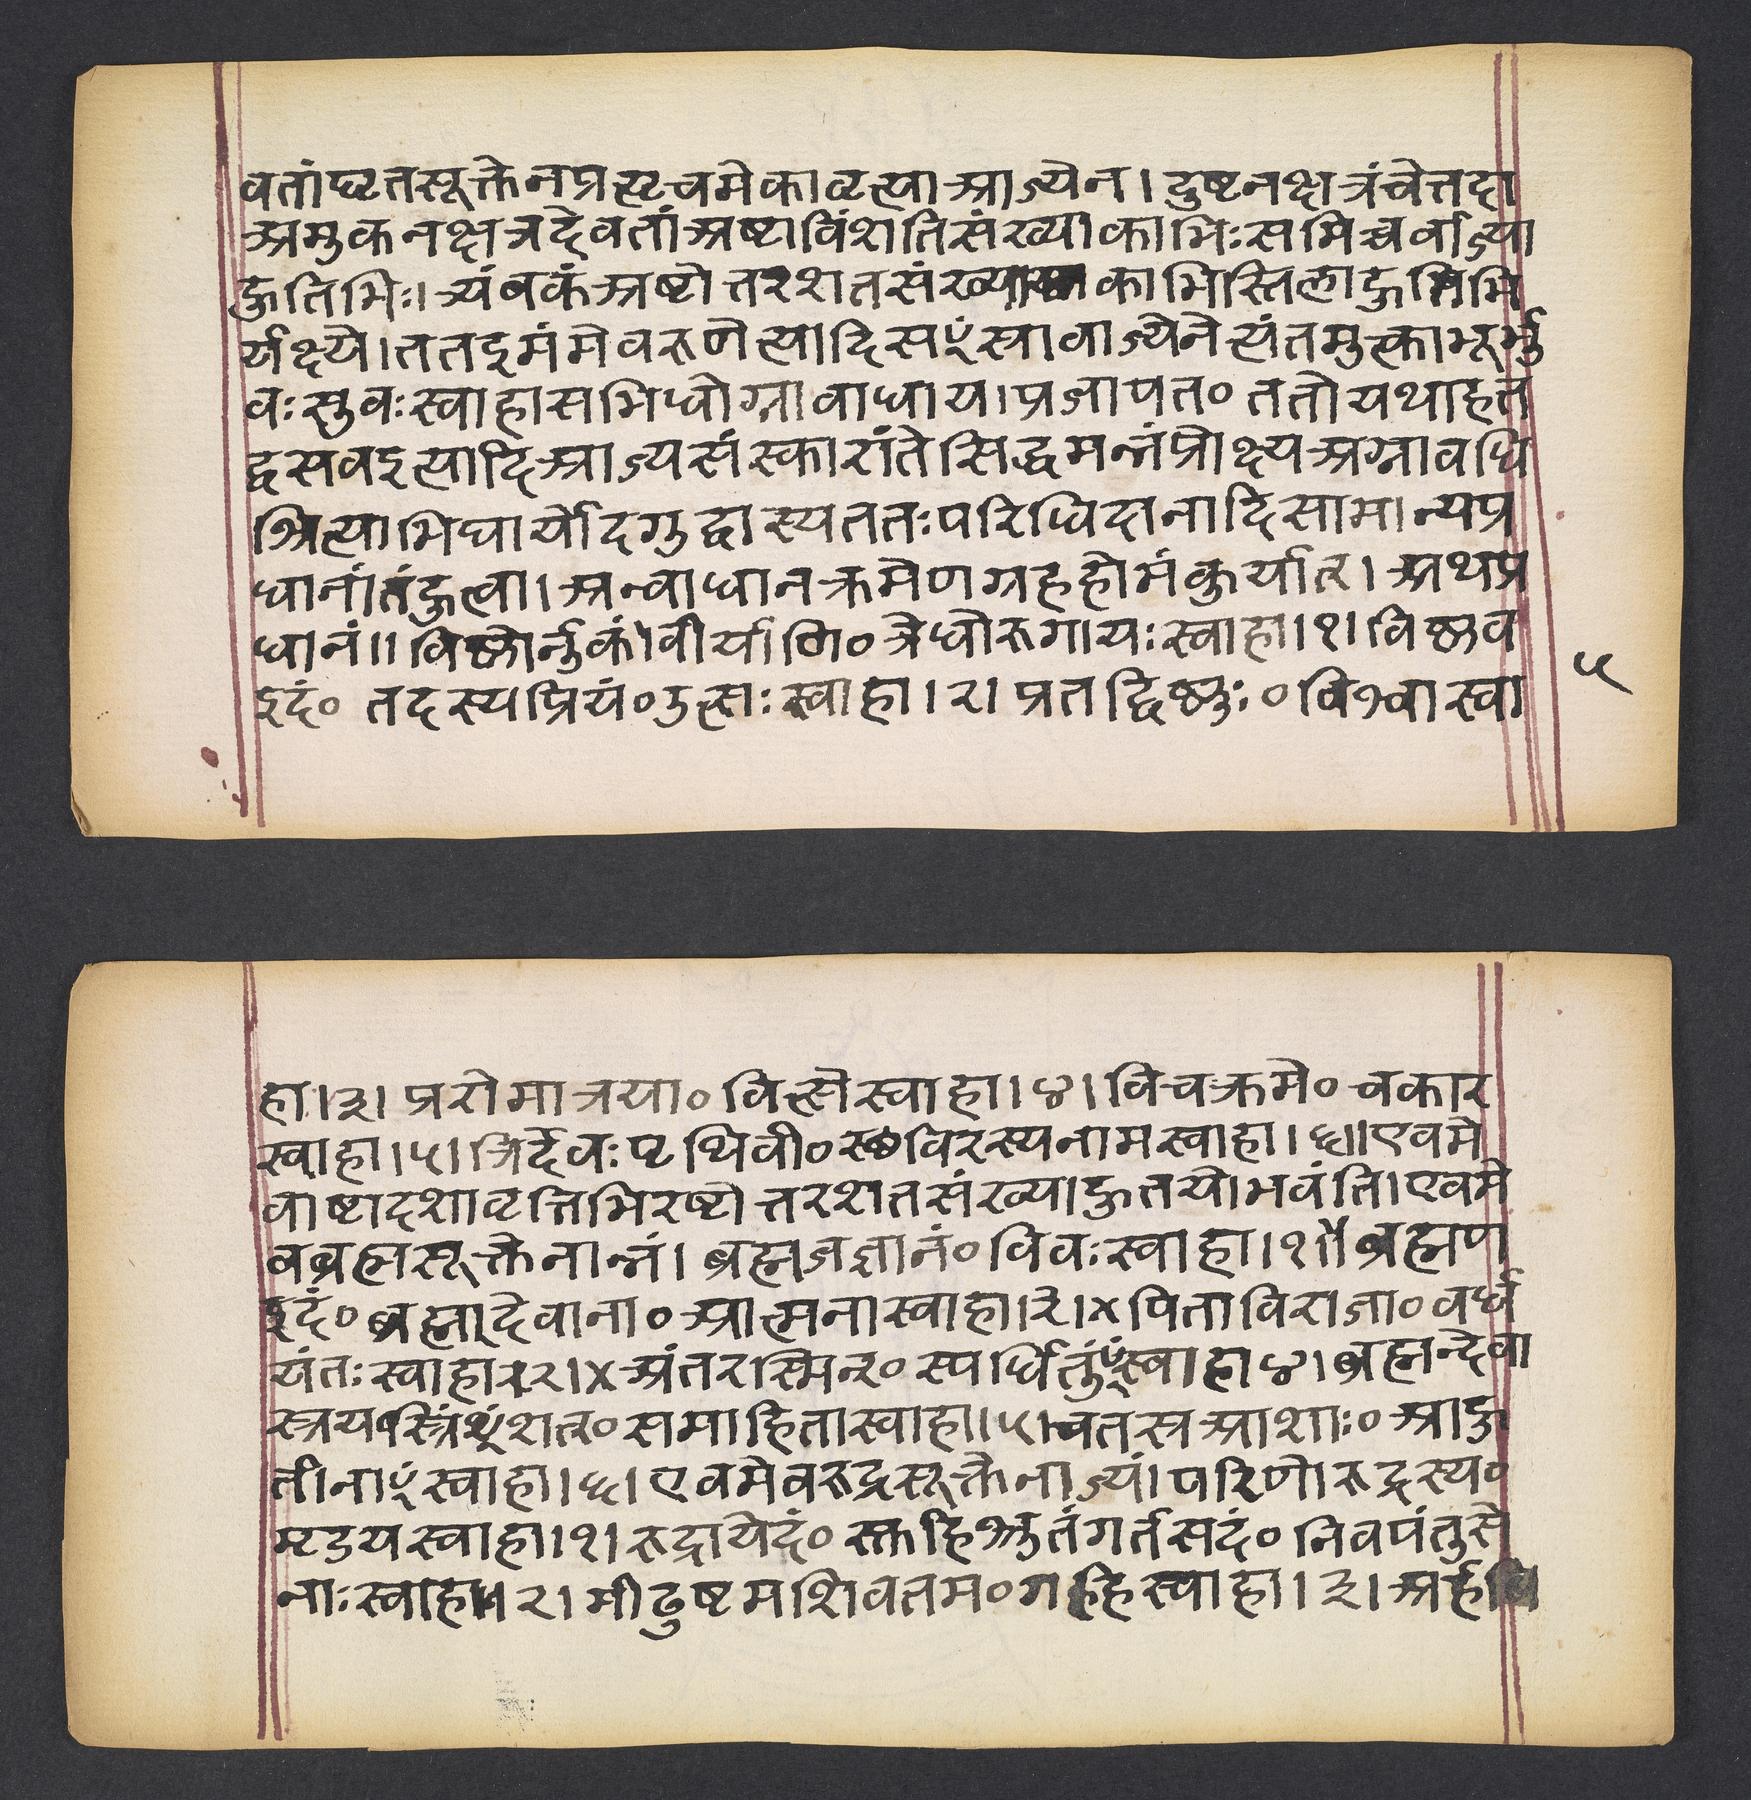 वतां घृतसूक्तेन प्रत्यृचमेकावृत्या आज्येन । दुष्टनक्षत्रं चेत्तदा
अमुकनक्षत्रदेवतां अष्टाविंशतिसंख्याकाभिः समिच्चर्वाज्या
हुतिभिः । त्र्यंबकं अष्टोत्तरशतसंख्याकाभिस्तिलाहुतिभि
र्यक्ष्ये । तत इमं मे वरुणेत्यादि सꣳस्रावाज्येनेत्यंतमुत्काभूर्भु
वः सुवः स्वाहा समिधोग्नावाधाय । प्रजापत० ततो यथाहत
द्वसव इत्यादि आज्यसंस्कारांते सिद्धमन्नं प्रोक्ष्य अग्नावधि
श्रित्याभिघार्योदगुद्वास्य ततः परिधिदानादिसामान्यप्र
धानांतं हुत्वा । अन्वाधानक्रमेण ग्रहहोमं कुर्यात् । अथ प्र
धानं ॥ विष्णोर्नुकं वीर्याणि० त्रेधोरुगायः स्वाहा । १ । विष्णव
५
इदं० तदस्य प्रियं० उत्सः स्वाहा । २ । प्रतद्विष्णुः० विश्वा स्वा
हा । ३ । परो मात्रया० वित्से स्वाहा । ४ । विचक्रमे० चकार
स्वाहा । ५ । त्रिर्देवः पृथिवी० स्थविरस्य नाम स्वाहा । ६ ॥ एवमे
वाष्टादशावृत्तिभिरष्टोत्तरशतसंख्याहुतयो भवंति । एवमे
व ब्रह्मसूक्तेनान्नं । ब्रह्मजज्ञानं० विवः स्वाहा । १ । ब्रह्मण
इदं० ब्रह्मा देवाना० आत्मना स्वाहा । ३ । × पिता विराजा० वर्ध
यंतः स्वाहा २ । × अंतरस्मिन्० स्पर्धितुꣳ स्वाहा ४ । ब्रह्मन्देवा
स्त्रयस्त्रिꣳशत्० समाहिता स्वाहा । ५ । चतस्र आशाः० आहु
तीनाꣳ स्वाहा । ६ । एवमेव रुद्रसूक्तेनाज्यं । परिणो रुद्रस्य०
मृडय स्वाहा । १ । रुद्रायेदं० स्तहि श्रुतं गर्तसदं० निवपंतु से
नाः स्वाहा । २ । मीढुष्टम शिवतम० गहि स्वाहा । ३ । अर्हन्बि